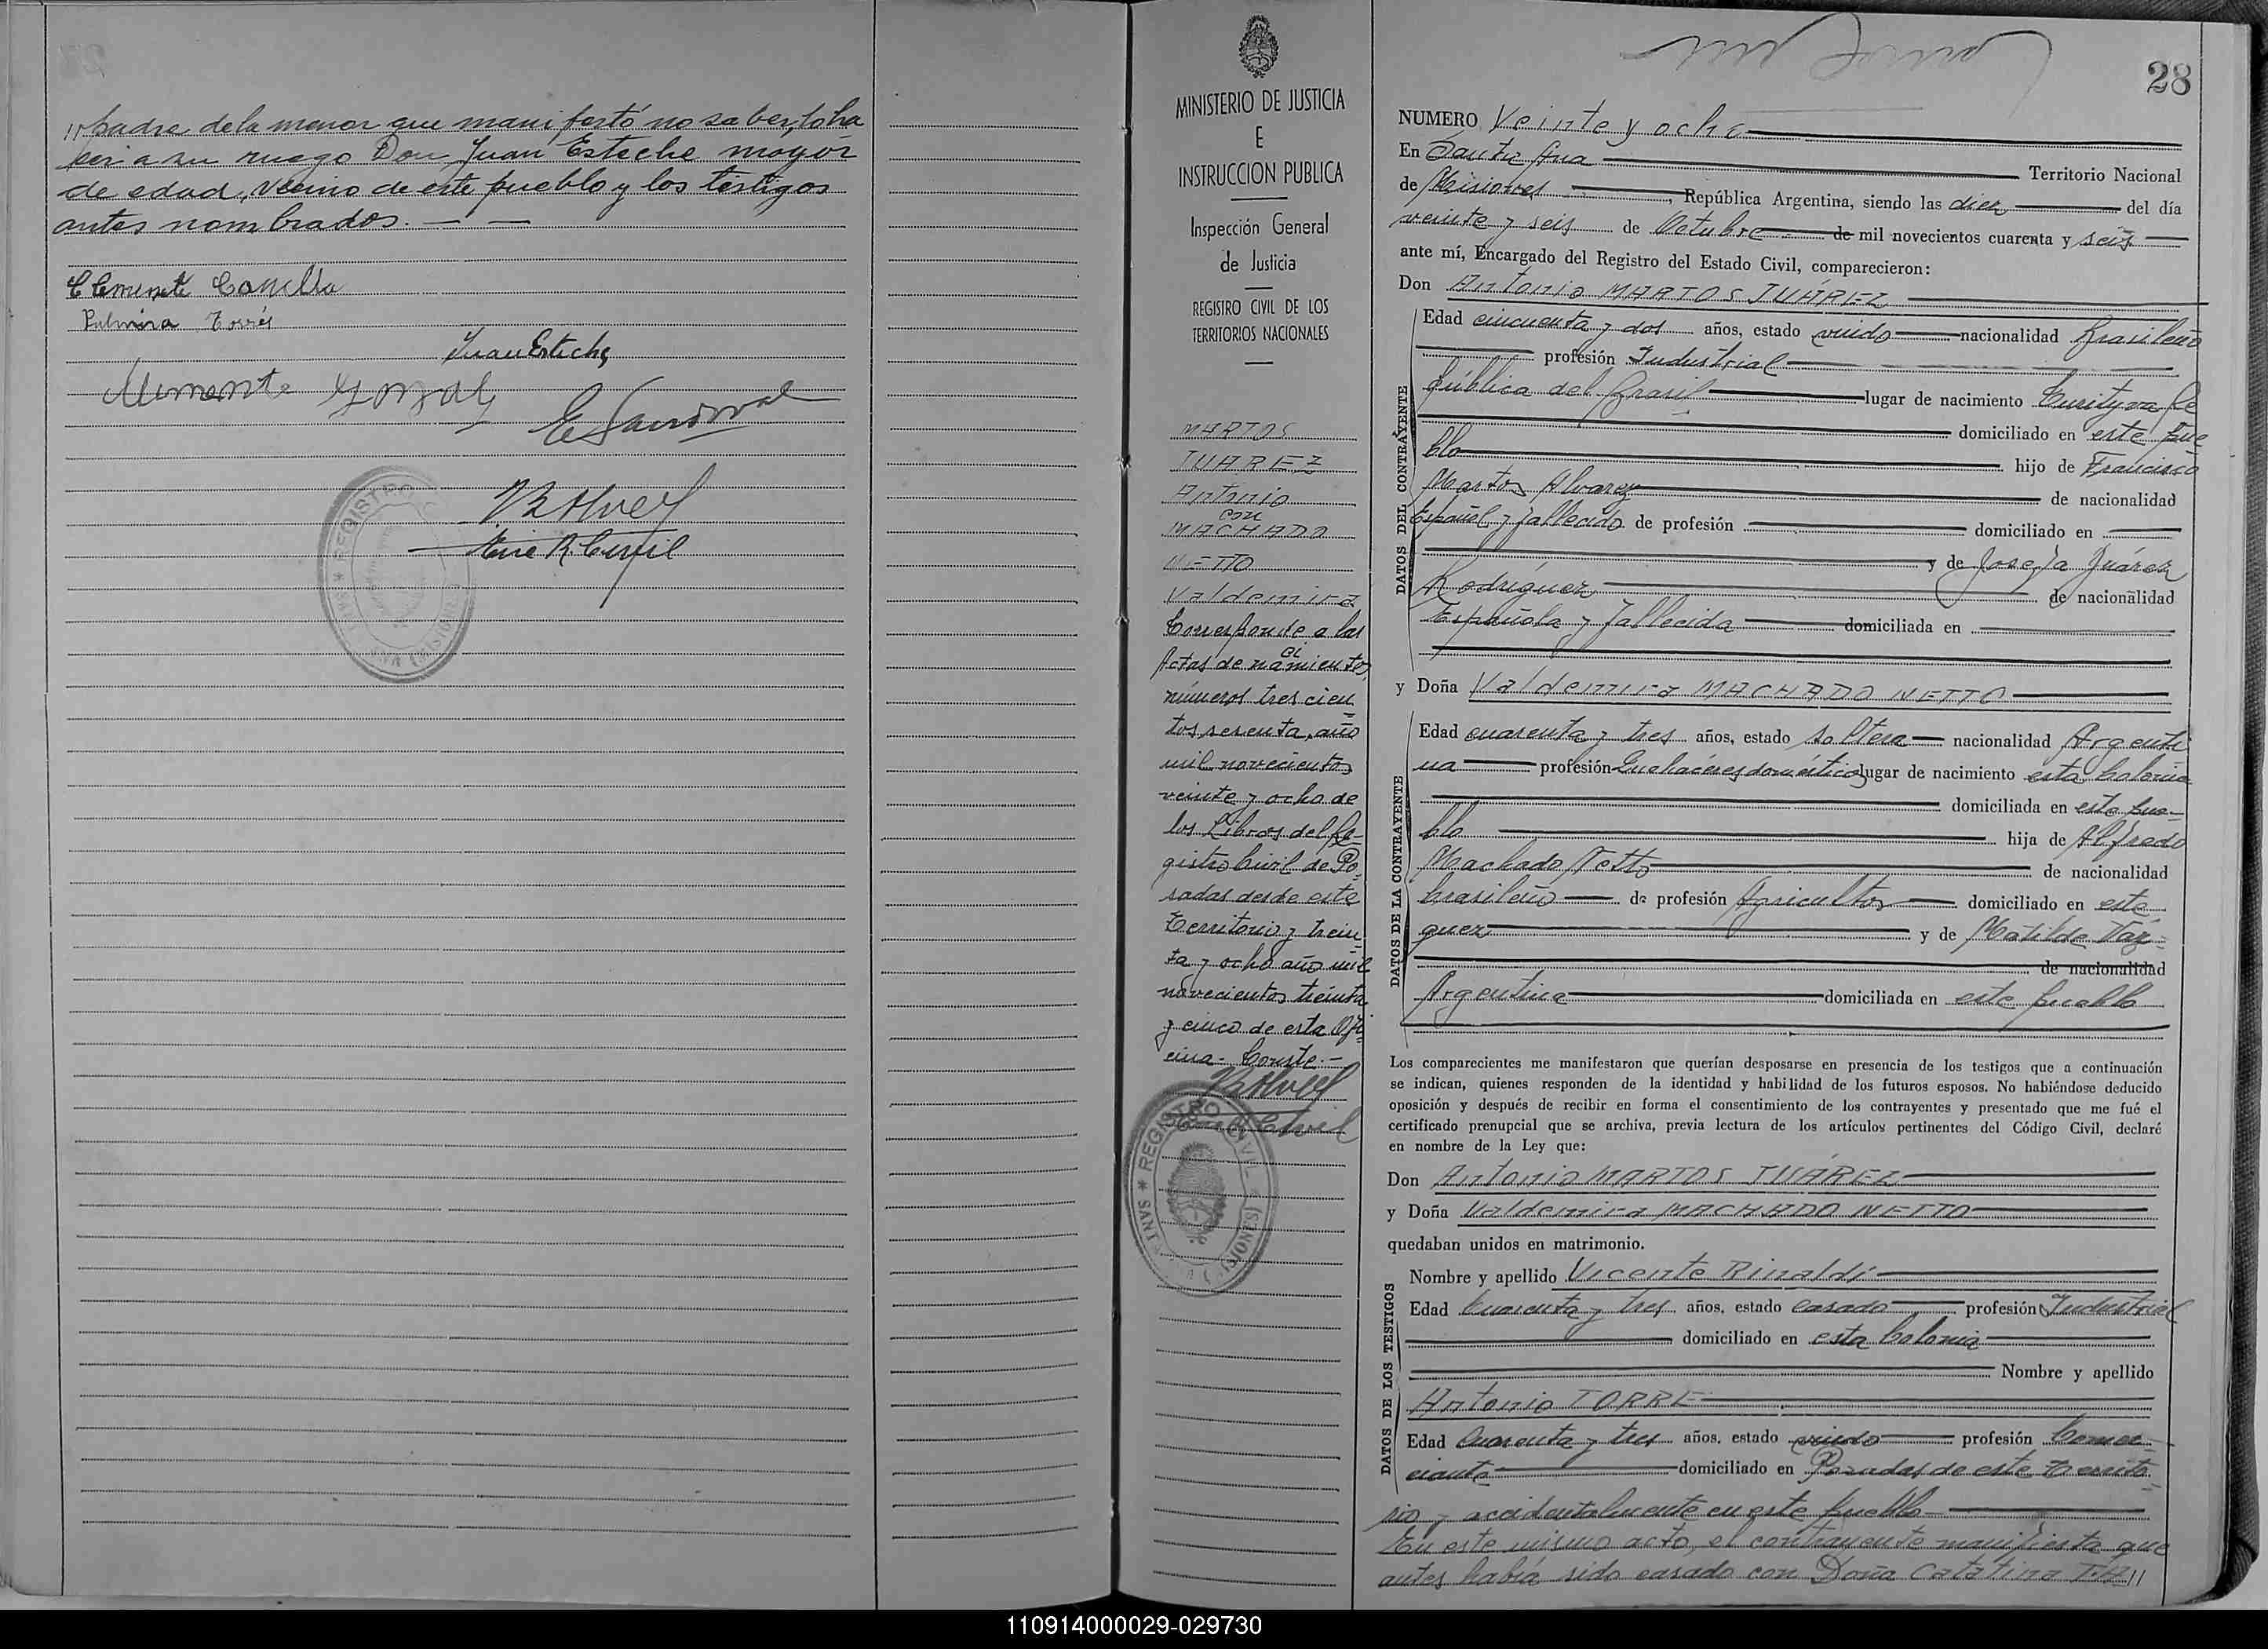 padre de la menor que manifestó no saberlo ha
cer a su ruego Don Juan Esteche mayor
de edad, vecino de este pueblo y los testigos
antes nombrados. — —
Palmira Torres
Juan Esteche
E Sandoval
MINISTERIO DE JUSTICIA
E
INSTRUCCION PUBLICA
Inspección General
de Justicia
REGISTRO CIVIL DE LOS
TERRITORIOS NACIONALES
MARTOS
JUAREZ
Antonio
con
MACHADO
NETTO
Valdemira
Corresponde a las
Actas de nacimientos
números trescien
tos sesenta, año
mil novecientos
veinte y ocho de
los Libros del Re-
gistro Civil de Po-
sadas desde este
Territorio y trein
ta y ocho año mil
novecientos treinta
y cinco de esta Ofi
cina- Conste.-
REGISTRO CIVIL
28
NUMERO Veinte y ocho
En Santa Ana Territorio Nacional
de Misiones, República Argentina, siendo las diez del día
veinte y seis de Octubre de mil novecientos cuarenta y seis
ante mí, Encargado del Registro del Estado Civil, comparecieron:
Don Antonio MARTOS JUÁREZ
DATOS DEL CONTRAYENTE
Edad cincuenta y dos años, estado viudo nacionalidad Brasileño
profesión Industrial
lugar de nacimiento Curityva Re
pública del Brasil
domiciliado en este Pue
blo hijo de Francisco
Martos Alvarez de nacionalidad
Español y fallecido de profesión domiciliado en
y de Josefa Juárez
Rodríguez de nacionalidad
Española y fallecida domiciliada en
y Doña Valdemira MACHADO NETTO
DATOS DE LA CONTRAYENTE
Edad cuarenta y tres años, estado soltera nacionalidad Argenti
na profesión Quehaceres domésticos lugar de nacimiento esta Colonia
domiciliada en este pue-
blo hija de Alfredo
Machado Netto de nacionalidad
brasileño de profesión Agricultor domiciliado en este
y de Matilde Váz-
quez de nacionalidad
Argentina domiciliada en este pueblo
Los comparecientes me manifestaron que querían desposarse en presencia de los testigos que a continuación
se indican, quienes responden de la identidad y habilidad de los futuros esposos. No habiéndose deducido
oposición y después de recibir en forma el consentimiento de los contrayentes y presentado que me fué el
certificado prenupcial que se archiva, previa lectura de los artículos pertinentes del Código Civil, declaré
en nombre de la Ley que:
Don Antonio MARTOS JUÁREZ
y Doña Valdemira MACHADO NETTO
quedaban unidos en matrimonio.
DATOS DE LOS TESTIGOS
Nombre y apellido Vicente Rinaldi
Edad Cuarenta y tres años, estado casado profesión Industrial
domiciliado en esta Colonia
Nombre y apellido
Antonio TORRE
Edad Cuarenta y tres años, estado viudo profesión Comer-
ciante domiciliado en Posadas de este Territo-
rio y accidentalmente en este pueblo
En este mismo acto, el contrayente manifiesta que
antes había sido casado con Doña Catalina
110914000029-029730